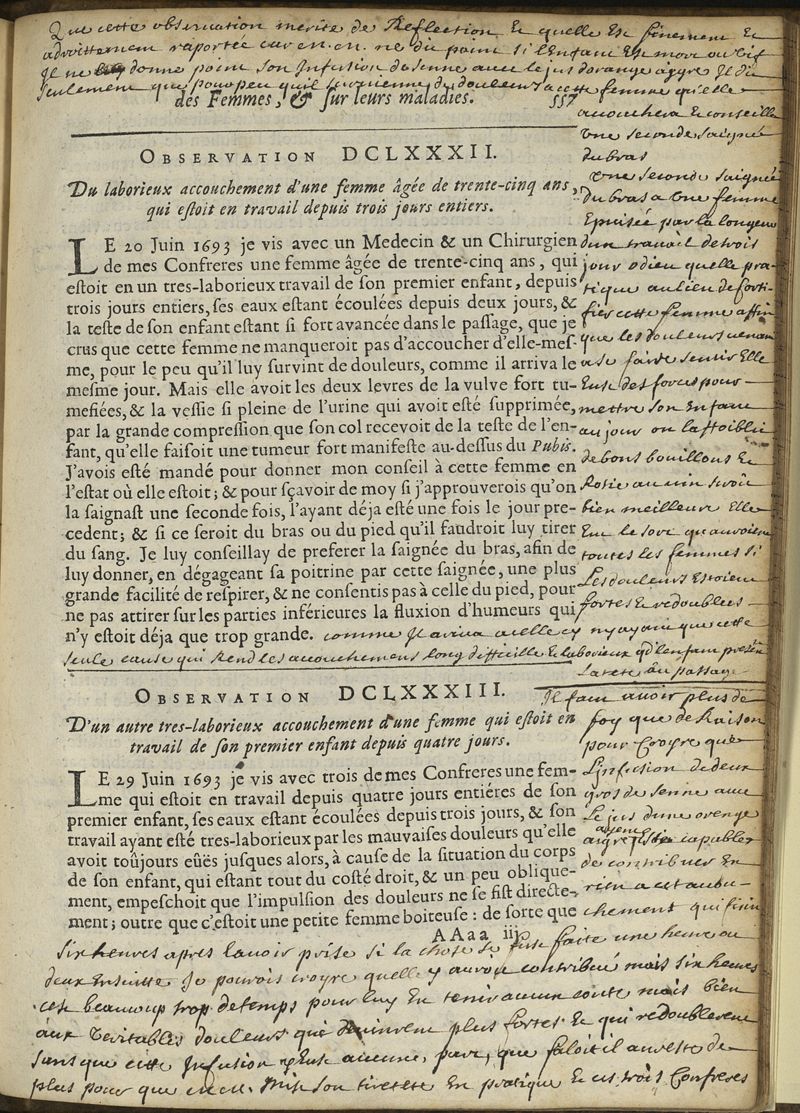 Que cette observation merite de Reflection Et quelle Est finement Et
adroittement raportée car en. en. ne dit point si l'Enfant Est mort ou vif
Il ne donne point son Infusion de senne avec le jus dorange aigre Il dit
seulement que pour peu quil survienne de douleurs a cette femme quelle
des Femmes, & sur leurs maladies. 557
acouchera Et conseille
Une seconde saignée
du bras
OBSERVATION DCLXXXII.
Du laborieux accouchement d'une femme âgée de trente-cinq ans,
qui estoit en travail depuis trois jours entiers.
LE 20 Juin 1693 je vis avec un Medecin & un Chirurgien
de mes Confreres une femme âgée de trente-cinq ans, qui
estoit en un tres-laborieux travail de son premier enfant, depuis
trois jours entiers, ses eaux estant écoulées depuis deux jours, &
la teste de son enfant estant si fort avancée dans le passage, que je
crus que cette femme ne manqueroit pas d'accoucher d'elle-mes-
me, pour le peu qu'il luy survint de douleurs, comme il arriva le
mesme jour. Mais elle avoit les deux levres de la vulve fort tu-
mefiées, & la vessie si pleine de l'urine qui avoit esté supprimée,
par la grande compression que son col recevoit de la teste de l'en-
fant, qu'elle faisoit une tumeur fort manifeste au-dessus du Pubis.
J'avois esté mandé pour donner mon conseil à cette femme en
l'estat où elle estoit; & pour sçavoir de moy si j'approuverois qu'on
la saignast une seconde fois, l'ayant déja esté une fois le jour pre-
cedent; & si ce seroit du bras ou du pied qu'il faudroit luy tirer
du sang. Je luy conseillay de preferer la saignée du bras, afin de
luy donner, en dégageant sa poitrine par cette saignée, une plus
grande facilité de respirer, & ne consentis pas à celle du pied, pour
ne pas attirer sur les parties inférieures la fluxion d'humeurs qui
n'y estoit déja que trop grande. comme Il ariva a celle cy ny ayant que cette
seule cause qui Rend les acouchemens long difficille Et laborieux qd lenfant presente
La tete au passage
Une seconde saignée
du bras a Une femme
Epuisée par la longeur
dun travail de trois
jour o dieu quelle pra-
tique au lien de forti-
fier cette femme affin
que les douleurs venant
a se faire sentir Elle
Eust des forces pour
mettre son Enfant
au jour on laffoiblie
de bons bouillons Et
Rotie au vin seroit
bien meilleure Elle
Eut le sort quauroient
toutes les femmes si
Les douleurs Estoient
fortes Et redoublées
OBSERVATION DCLXXXIII.
D'un autre tres-laborieux accouchement d'une femme qui estoit en
travail de son premier enfant depuis quatre jours.
LE 29 Juin 1693 je vis avec trois de mes Confreres une fem-
me qui estoit en travail depuis quatre jours entiéres de son
premier enfant, ses eaux estant écoulées depuis trois jours, & son
travail ayant esté tres-laborieux par les mauvaises douleurs qu'elle
avoit toûjours eûës jusques alors, à cause de la situation du corps
de son enfant, qui estant tout du costé droit, & un peu oblique-
ment, empeschoit que l'impulsion des douleurs ne se fist directe-
ment; outre que c'estoit une petite femme boiteuse: de sorte que
AAaa iij
Il faut avoir plus de
foy que de Raison
pour Croyre que
L'infusion de deux
gros de senne avec
Le jus dune orenge
aigre capable
de contribuer En
rien a cet acou-
chement qui finit
six heures apres lavoir prise si la chose se fust faite une heure ou
deux Ensuitte Je pouvois croyre quelle y auroit contribué mais six heures
cest beaucoup trop de temps pour luy En tenir aucun conte mais bien
aux Veritables douleurs qui devinrent plus fortes Et qui redoublerent
sans que cette Infusion y Eust aucune part, que faloit il au reste de
plus pour que mit son tiretete En pratique Et ces trois Confreres